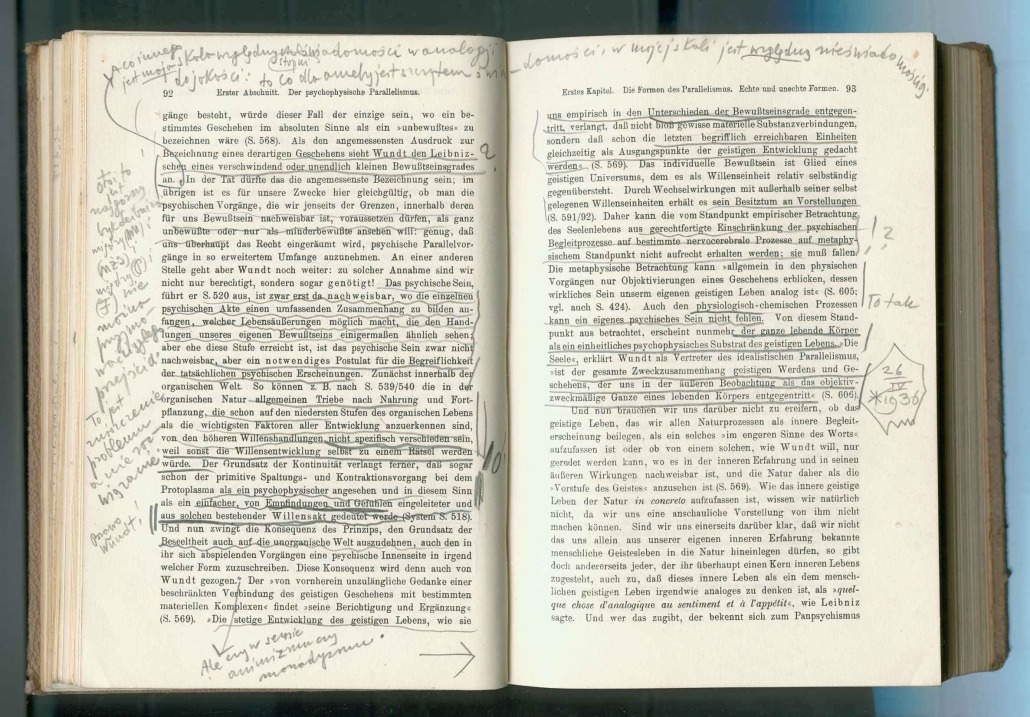 co innego
jest moja skala względnych świadomości w analogji
stopni
do jakości: to co dla ameby jest szczytem świa-
92 Erster Abschnitt. Der psychophysische Parallelismus.
gänge besteht, würde dieser Fall der einzige sein, wo ein be-
stimmtes Geschehen im absoluten Sinne als ein »unbewußtes« zu
bezeichnen wäre (S. 568). Als den angemessensten Ausdruck zur
Bezeichnung eines derartigen Geschehens sieht Wundt den Leibniz-
schen eines verschwindend oder unendlich kleinen Bewußtseinsgrades
an. In der Tat dürfte das die angemessenste Bezeichnung sein; im
übrigen ist es für unsere Zwecke hier gleichgültig, ob man die
psychischen Vorgänge, die wir jenseits der Grenzen, innerhalb deren
für uns Bewußtsein nachweisbar ist, voraussetzen dürfen, als ganz
unbewußte oder nur als minderbewußte ansehen will: genug, daß
uns überhaupt das Recht eingeräumt wird, psychische Parallelvor-
gänge in so erweitertem Umfange anzunehmen. An einer anderen
Stelle geht aber Wundt noch weiter: zu solcher Annahme sind wir
nicht nur berechtigt, sondern sogar genötigt! Das psychische Sein,
führt er S. 520 aus, ist zwar erst da nachweisbar, wo die einzelnen
psychischen Akte einen umfassenden Zusammenhang zu bilden an-
fangen, welcher Lebensäußerungen möglich macht, die den Hand-
lungen unseres eigenen Bewußtseins einigermaßen ähnlich sehen;
aber ehe diese Stufe erreicht ist, ist das psychische Sein zwar nicht
nachweisbar, aber ein notwendiges Postulat für die Begreiflichkeit
der tatsächlichen psychischen Erscheinungen. Zunächst innerhalb der
organischen Welt. So können z. B. nach S. 539/540 die in der
organischen Natur allgemeinen Triebe nach Nahrung und Fort-
pflanzung, die schon auf den niedersten Stufen des organischen Lebens
als die wichtigsten Faktoren aller Entwicklung anzuerkennen sind,
von den höheren Willenshandlungen nicht spezifisch verschieden sein,
weil sonst die Willensentwicklung selbst zu einem Rätsel werden
würde. Der Grundsatz der Kontinuität verlangt ferner, daß sogar
schon der primitive Spaltungs- und Kontraktionsvorgang bei dem
Protoplasma als ein psychophysischer angesehen und in diesem Sinn
als ein einfacher, von Empfindungen und Gefühlen eingeleiteter und
aus solchen bestehender Willensakt gedeutet werde (System S. 518).
Und nun zwingt die Konsequenz des Prinzips, den Grundsatz der
Beseeltheit auch auf die unorganische Welt auszudehnen, auch den in
ihr sich abspielenden Vorgängen eine psychische Innenseite in irgend
welcher Form zuzuschreiben. Diese Konsequenz wird denn auch von
Wundt gezogen. Der »von vornherein unzulängliche Gedanke einer
beschränkten Verbindung des geistigen Geschehens mit bestimmten
materiellen Komplexen« findet »seine Berichtigung und Ergänzung«
(S. 569). »Die stetige Entwicklung des geistigen Lebens, wie sie
?
otóż to
!
10!
Brawo
Wundt!
Ale czy w sensie
animizmu czy
monadyzmu.
domości, w mojej skali jest względną nieświado
mością.
Erstes Kapitel. Die Formen des Parallelismus. Echte und unechte Formen. 93
uns empirisch in den Unterschieden der Bewußtseinsgrade entgegen-
tritt, verlangt, daß nicht bloß gewisse materielle Substanzverbindungen,
sondern daß schon die letzten begrifflich erreichbaren Einheiten
gleichzeitig als Ausgangspunkte der geistigen Entwicklung gedacht
werden« (S. 569). Das individuelle Bewußtsein ist Glied eines
geistigen Universums, dem es als Willenseinheit relativ selbständig
gegenübersteht. Durch Wechselwirkungen mit außerhalb seiner selbst
gelegenen Willenseinheiten erhält es sein Besitztum an Vorstellungen
(S. 591/92). Daher kann die vom Standpunkt empirischer Betrachtung
des Seelenlebens aus gerechtfertigte Einschränkung der psychischen
Begleitprozesse auf bestimmte nervocerebrale Prozesse auf metaphy-
sischem Standpunkt nicht aufrecht erhalten werden; sie muß fallen.
Die metaphysische Betrachtung kann »allgemein in den physischen
Vorgängen nur Objektivierungen eines Geschehens erblicken, dessen
wirkliches Sein unserm eigenen geistigen Leben analog ist (S. 605;
vgl. auch S. 424). Auch den physiologisch-chemischen Prozessen
kann ein eigenes psychisches Sein nicht fehlen. Von diesem Stand-
punkt aus betrachtet, erscheint nunmehr der ganze lebende Körper
als ein einheitliches psychophysisches Substrat des geistigen Lebens. »Die
Seele«, erklärt Wundt als Vertreter des idealistischen Parallelismus,
»ist der gesamte Zweckzusammenhang geistigen Werdens und Ge-
schehens, der uns in der äußeren Beobachtung als das objektiv-
zweckmäßige Ganze eines lebenden Körpers entgegentritt« (S. 606).
Und nun brauchen wir uns darüber nicht zu ereifern, ob das
geistige Leben, das wir allen Naturprozessen als innere Begleit-
erscheinung beilegen, als ein solches »im engeren Sinne des Worts«
aufzufassen ist oder ob von einem solchen, wie Wundt will, nur
geredet werden kann, wo es in der inneren Erfahrung und in seinen
äußeren Wirkungen nachweisbar ist, und die Natur daher als die
»Vorstufe des Geistes« anzusehen ist (S. 569). Wie das innere geistige
Leben der Natur in concreto aufzufassen ist, wissen wir natürlich
nicht, da wir uns eine anschauliche Vorstellung von ihm nicht
machen können. Sind wir uns einerseits darüber klar, daß wir nicht
das uns allein aus unserer eigenen inneren Erfahrung bekannte
menschliche Geistesleben in die Natur hineinlegen dürfen, so gibt
doch andererseits jeder, der ihr überhaupt einen Kern inneren Lebens
zugesteht, auch zu, daß dieses innere Leben als ein dem mensch-
lichen geistigen Leben irgendwie analoges zu denken ist, als »quel-
que chose d'analogique au sentiment et à l'appétit«, wie Leibniz
sagte. Und wer das zugibt, der bekennt sich zum Panpsychismus
! ?
To tak
26
IV
*1936